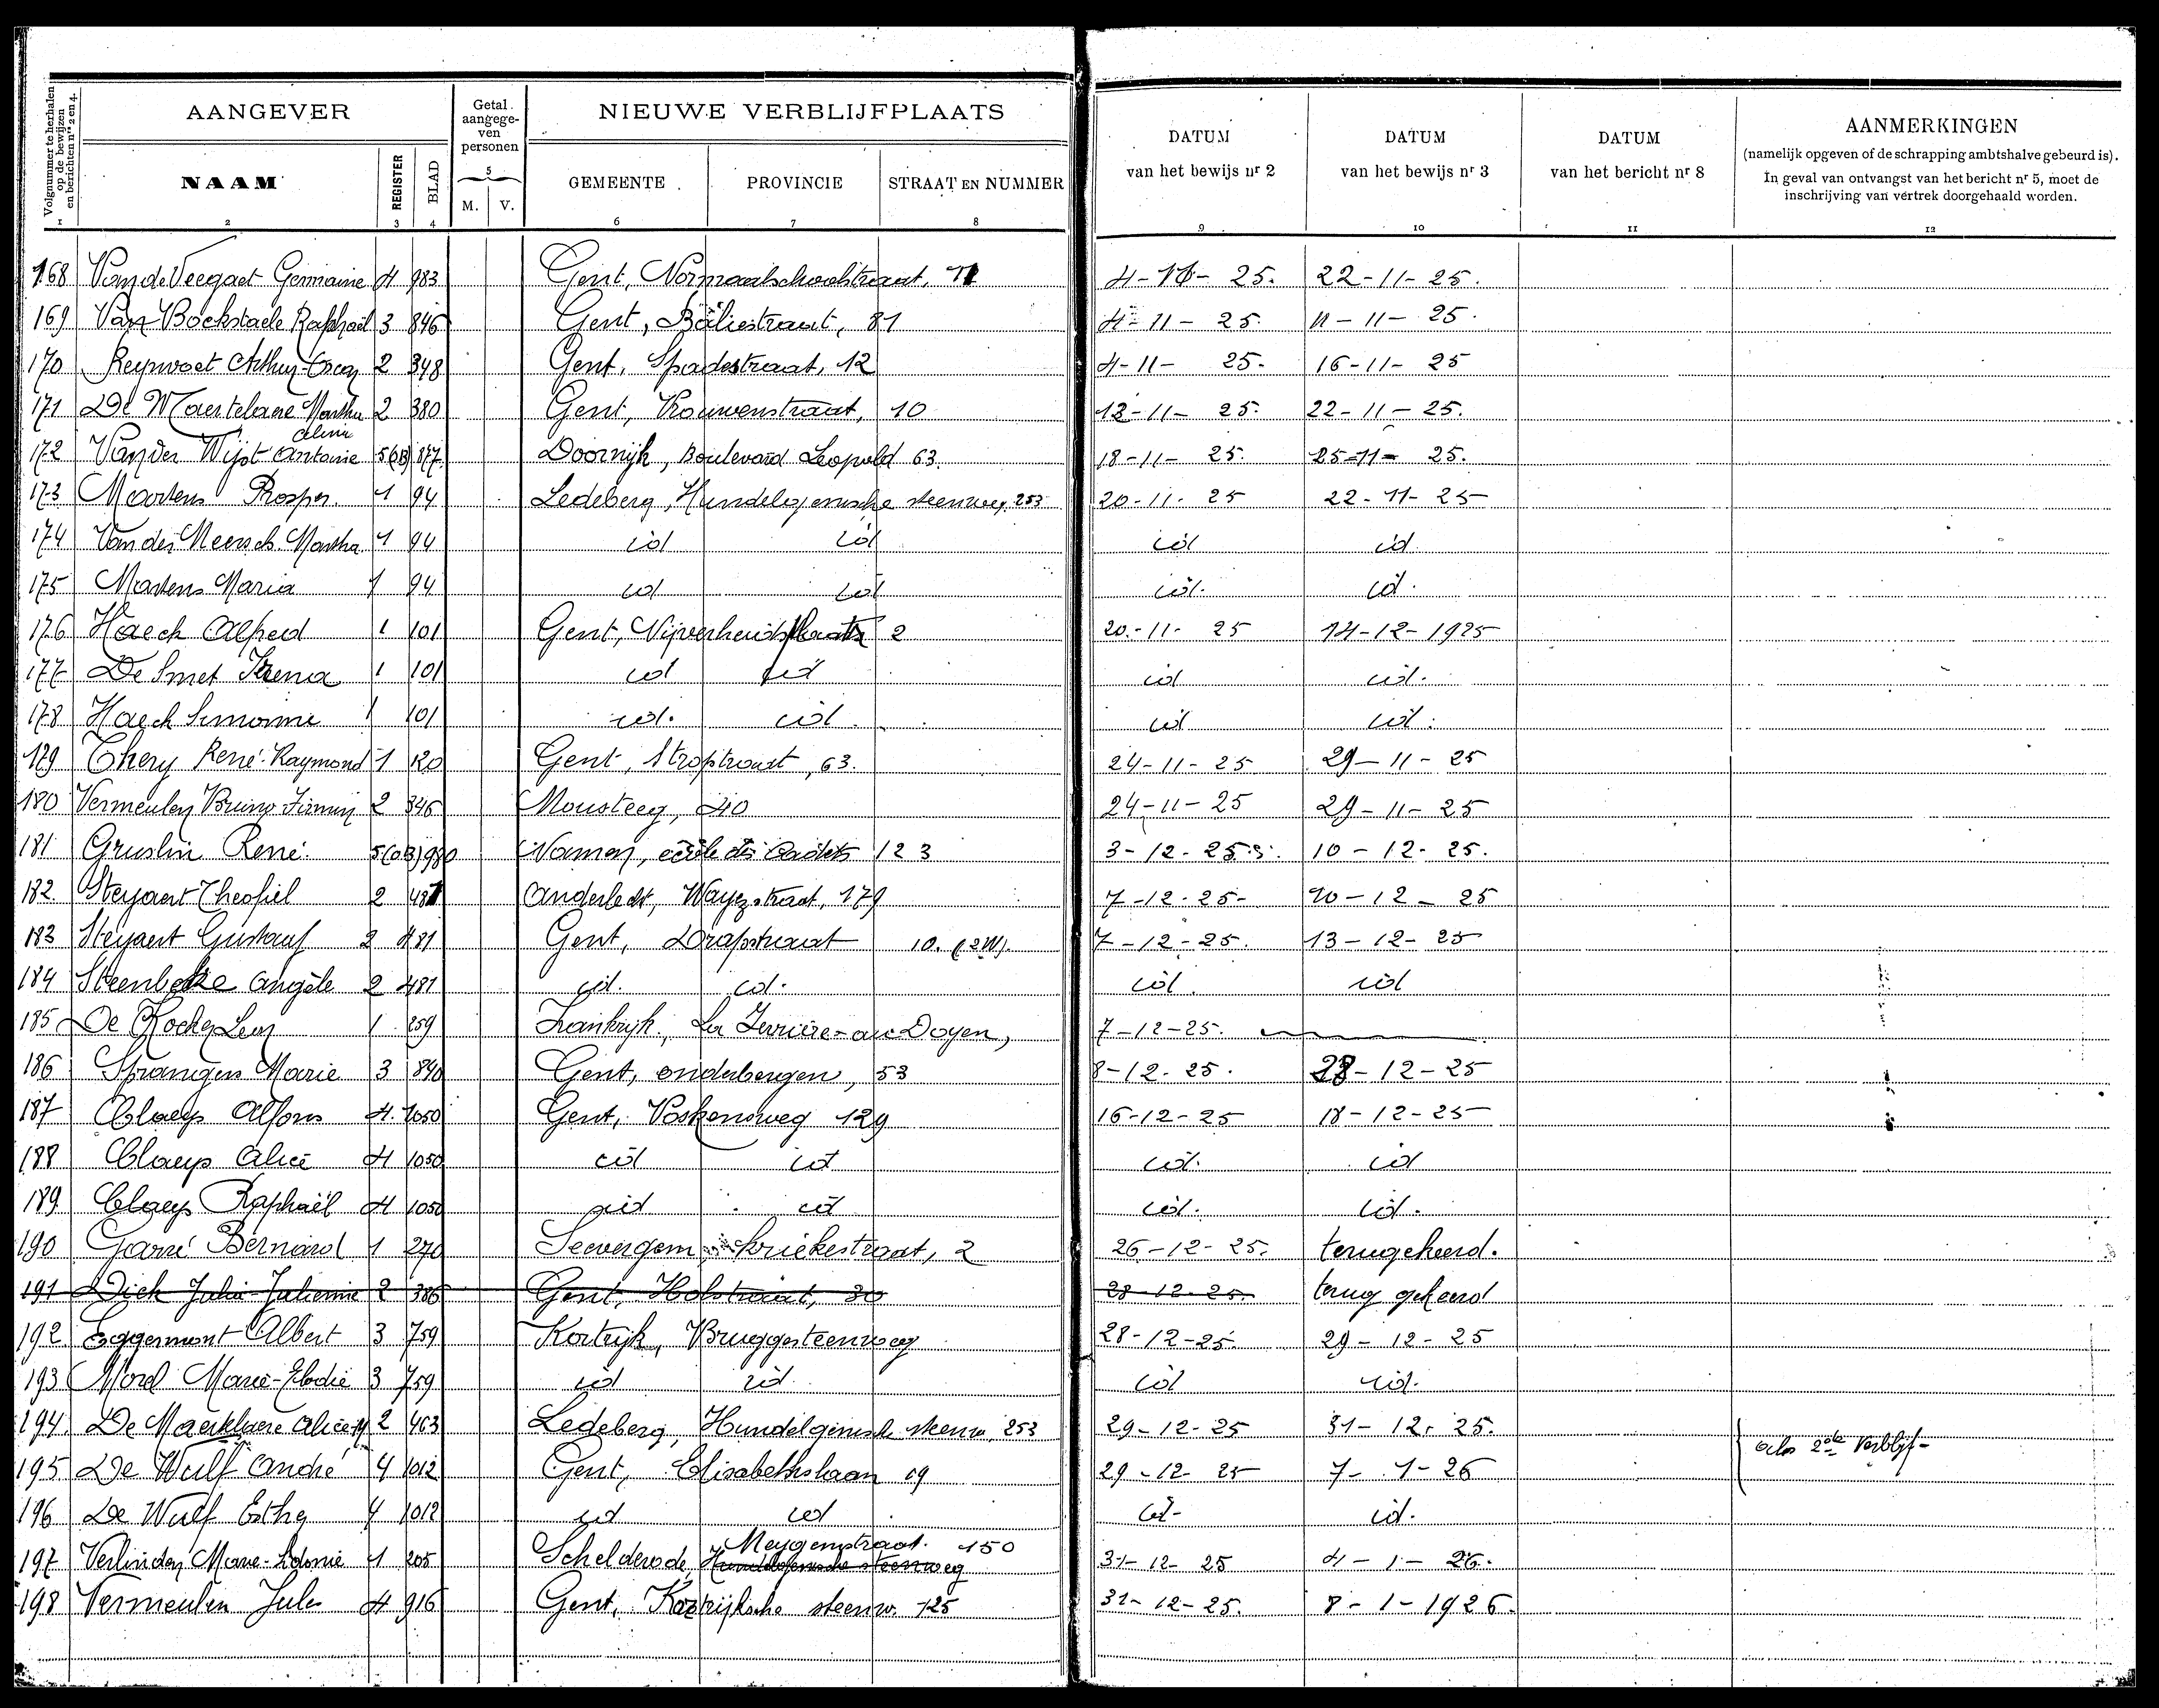 Volgnummer te herhalen op de bewijzen en berichten nrs 2 en 4.
AANGEVER
Getal aangegeven personen
NIEUWE VERBLIJFPLAATS
DATUM van het bewijs nr 2
DATUM van het bewijs nr 3
DATUM van het bericht nr 8
AANMERKINGEN
(namelijk opgeven of de schrapping ambtshalve gebeurd is).
In geval van ontvangst van het bericht nr 5, moet de
inschrijving van vertrek doorgehaald worden.
NAAM REGISTER BLAD 5 M. V. GEMEENTE PROVINCIE STRAAT EN NUMMER
1 2 3 4 6 7 8 9 10 11 12
168 Van de Veegaet Germaine 4 983 Gent, Normaalschoolstraat, 4-11- 25. 22-11-25.
169 Van Bockstaele Raphaël 3 846 Gent, Baliestraat, 81 4-11- 25. 11-11- 25.
170 Reynvoet Arthur-Oscar 2 348 Gent, Spadestraat, 12 4-11- 25. 16-11- 25
171 De Maertelaere Martha 2 380 Gent, Vrouwenstraat, 10 12-11- 25. 22-11-25.
Celine
172 Van der Wijst Antoinie 5(OB) 877 Doornijk, Boulevard Leopold 63. 18-11- 25. 25-11- 25.
173 Martens Prosper. 1 94 Ledeberg, Hundelgemsche steenweg, 253 20-11- 25 22-11-25
174 Van der Meersch Martha 1 94 id id id id.
175 Martens Maria 1 94 id id id. id.
176 Haeck Alfred 1 101 Gent, Nijverheidsplaats 2 20-11- 25 14-12-1925
177 De Smet Irena 1 101 id id id id.
178 Haeck Simonne 1 101 id. id. id id.
179 Thery René-Raymond 1 120 Gent, Stropstraat, 63. 24-11-25 29-11-25
180 Vermeulen Bruno Firmin 2 346 Mousteeg, 40 24-11-25 29-11-25
181 Gruslin René 5(OB) 980 Namen, école des Cadets 123 3-12-25. 10-12-25.
182 Steyaert Theofiel 2 481 Anderlecht, Wayezstraat, 179 7-12-25- 10-12- 25
183 Steyaert Gustaaf 2 481 Gent, Drapstraat 10. 7-12-25. 13-12-25
184 Steenbeke Angèle 2 481 id. id. id. id
185 De Kocker Leon 1 259 Frankrijk, La Ferrière-au-Doyen, 7-12-25.
186 Sprangers Marie 3 840 Gent, onderbergen, 53 8-12-25. 23-12-25
187 Claeys Alfons 4. 1050 Gent, Voskensweg 129 16-12-25 18-12-25
188 Claeys Alice 4 1050 id id id. id
189 Claeys Raphaël 4 1050 id id id. id.
190 Garré Bernard 1 270 Seevergem, Kriekestraat, 2 26-12-25. terugekeerd.
191 Dick Julia-Julienne 2 386 Gent, Holstraat, 30 28-12-25. terug gekeerd
192 Eggermont Albert 3 759 Kortrijk, Bruggesteenweg 28-12-25. 29-12-25
193 Morel Marie-Elodie 3 759 id id. id id.
194. De Maertelaere Alice-M 2 463 Ledeberg, Hundelgemsch steenw. 253 29-12-25 31-12-25.
2de Verblijf-
195 De Wulf André 4 1012 Gent, Elisabethlaan 19 29-12- 25 7-1-26
196 De Wulf Esther 4 1012 id id id- id.
197 Verlinden Marie-Sidonie 1 205 Schelderode, Meygemstraat. 150 31-12- 25 4-1-26.
Hundelgemsche steenweg
198 Vermeulen Jules 4 916 Gent, Kortrijksche steenw. 125 31-12-25. 8-1-1926.